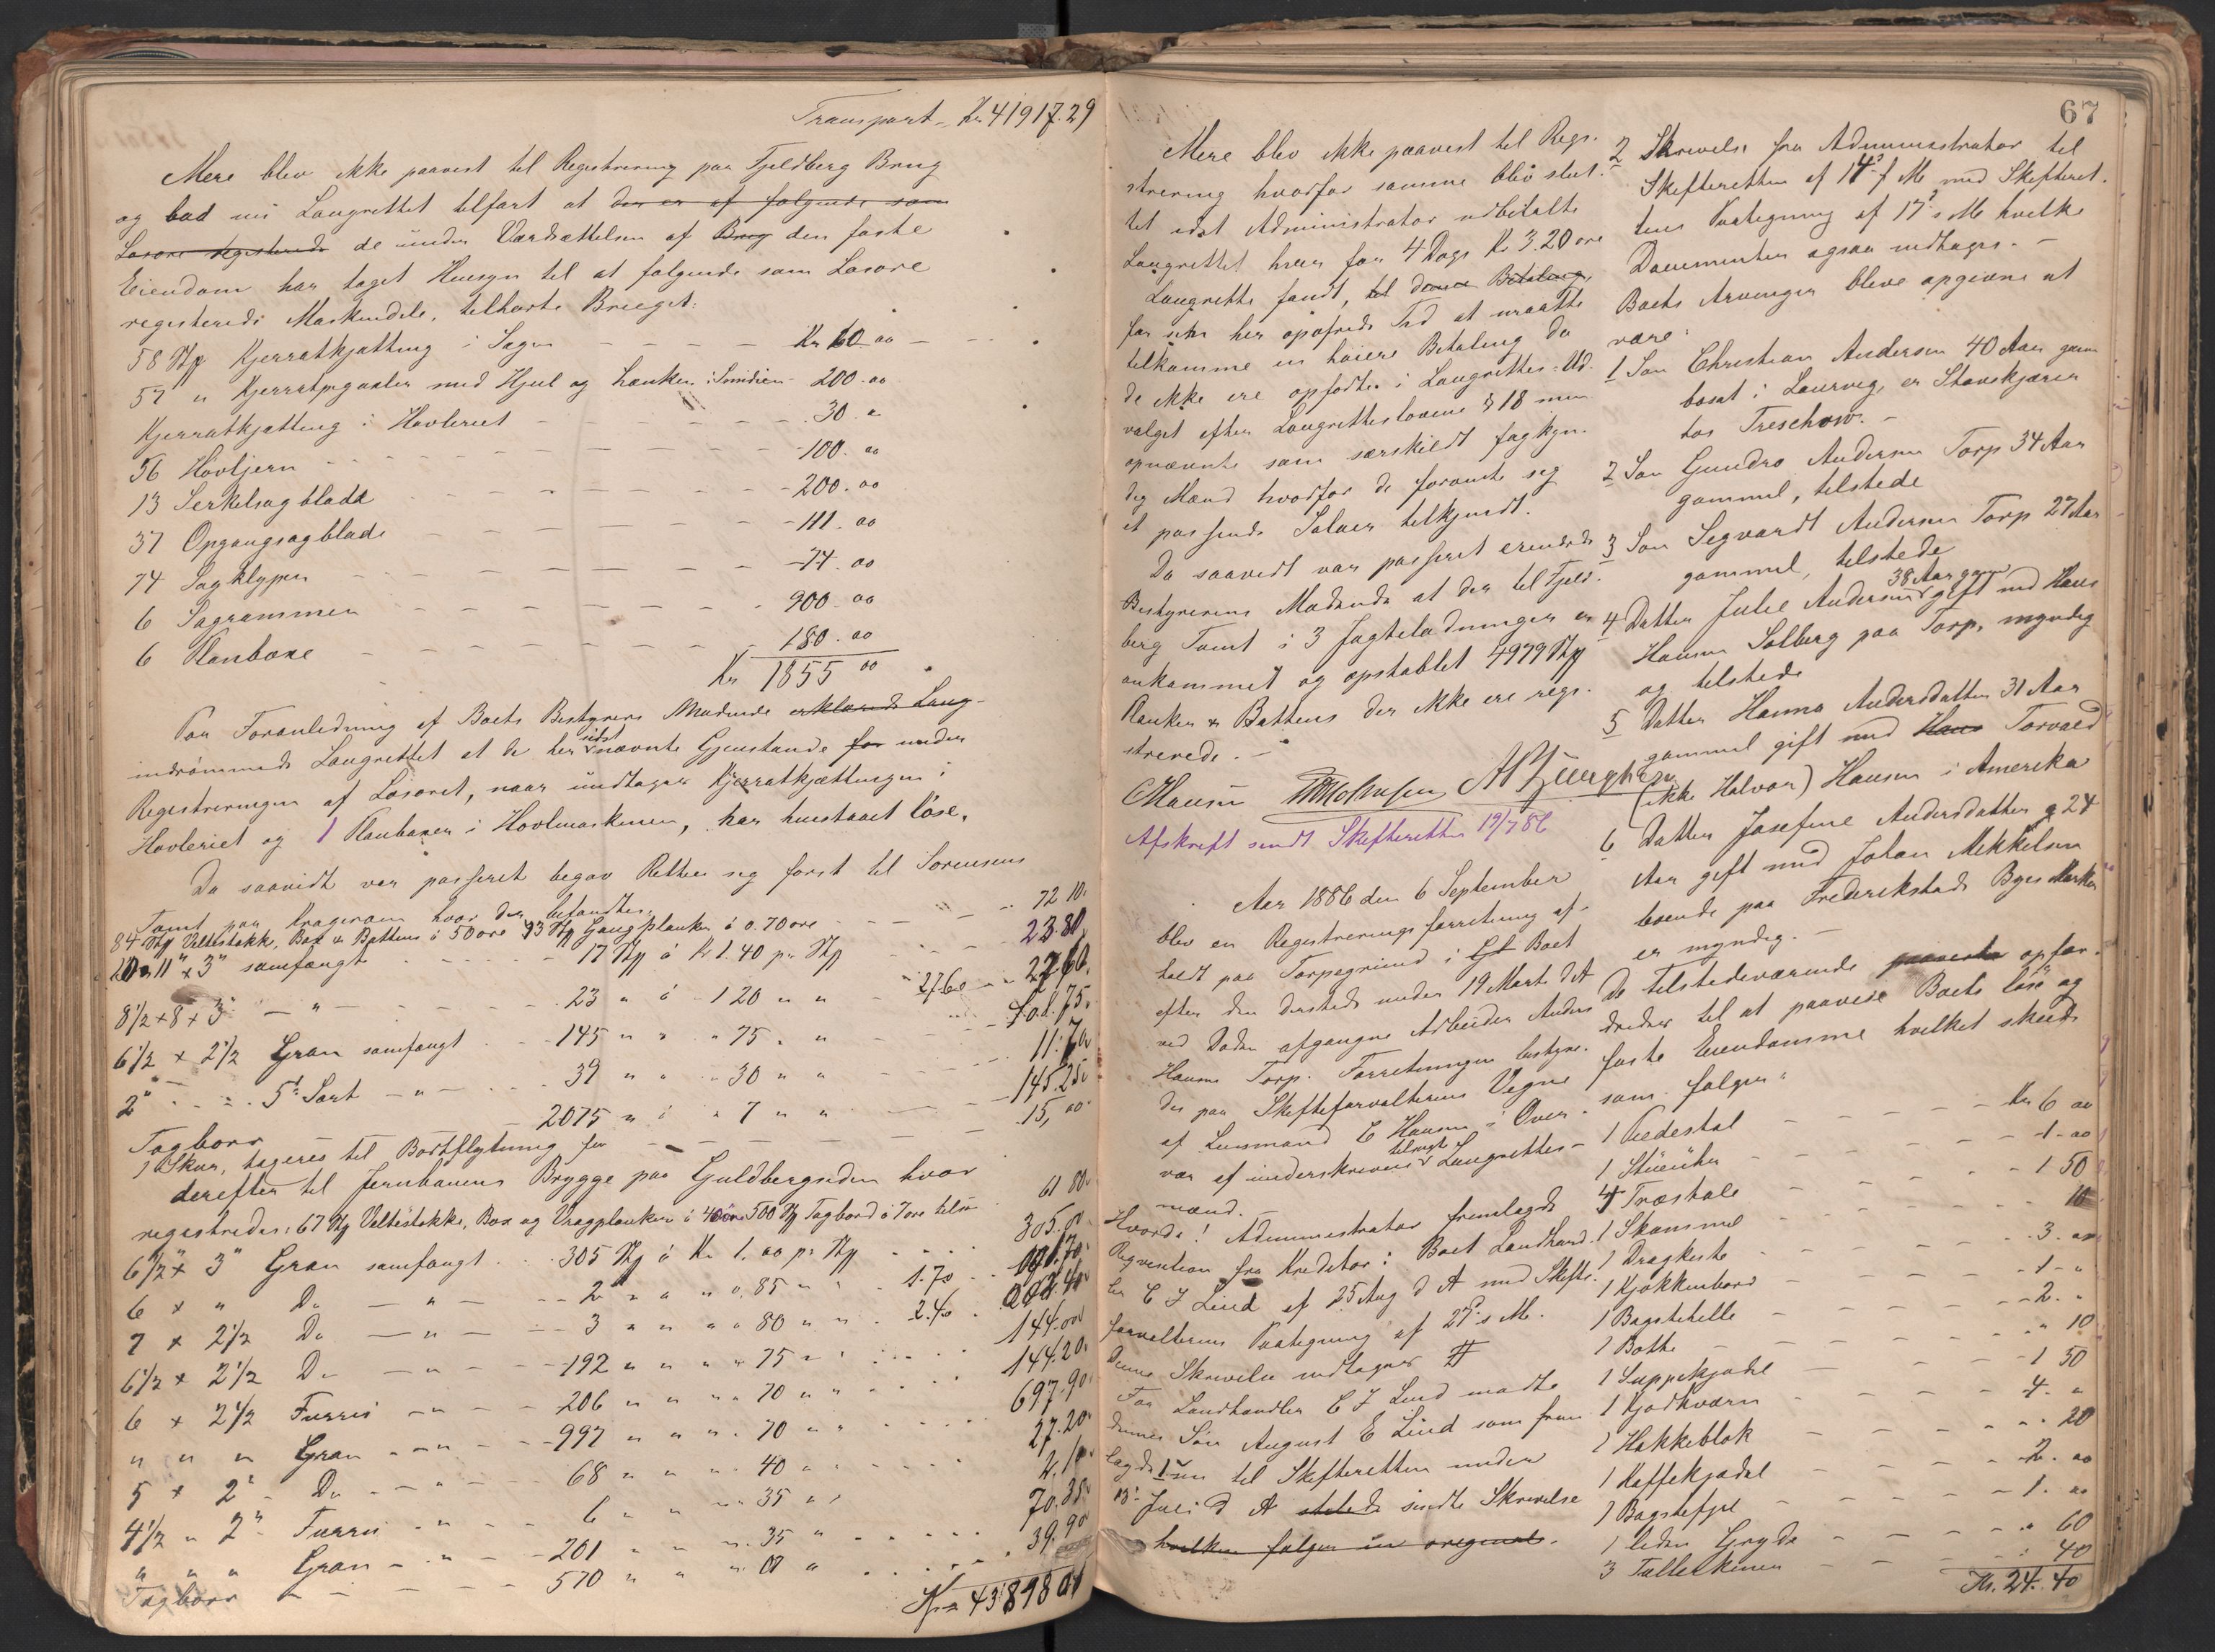 Transport Kr 41917.29
Mere blev ikke paavist til Registrering paa Fjeldberg Brug
og bad nu Laugrettet tilført at der er af følgende som
Løsøre registerede de under Værdsættelsen af Brug den faste
Eiendom har taget Hensyn til at følgende som Løsøre
registerede Maskindele, tilhørte Bruget:
58 Stk Kjerratkjætting i Sagen Kr 60.00
57 " med Hjul og Lænker i Smidien 200.00
Kjerratkjætting i Høvleriet 30. "
56 Høvljern 100.00
13 Serkelsagblade 200.00
37 Opgangsagblade 111.00
74 Sagklyper 74.00
6 Sagrammer 900.00
6 Kanbaxe 180.00
Kr 1855 00
Paa Foranledning af Boets Bestyrers Mødende erklærede Laug-
indrømmede Laugrettet at de her sidst nævnte Gjenstande før under
Registreringen af Løsøret, naar undtages Kjerratkjættingen i
Høvleriet og 1 Kanbaxen i Hovlmaskinen, har henstaaet löse.
Da saavidt var passeret begav Retten sig først til Sørensens
Tomt paa Kragerøen hvor der befandtes:
84 Stk Veltestokk, Box & Battens á 50 øre 43 Stk Gangplanker á 0.70 øre 72 10
11" x 3" samfængt 17 Stk á Kr 1.40 pr Stk 23.80
8½ x 8 x 3" - " - 23 " á - 1 20 " " 27.60 27.60
6½ x 2½ Gran samfængt 145 " " " 75 " " 108.75
2" 5te Sort - " - 39 " " 30 " " 11.70
Tagbord 2075 " á " 7 " " 145.25
1 Skur, tageres til Bortflytning for 15,00
derefter til Jernbanens Brygge paa Guldbergsiden hvor
registredes: 67 Stk Veltestokke, Box og Vragplanker á 40 øre 500 Stk Tagbord á 7 øre 61 80
6½ x 3" Gran samfængt 305 Stk á Kr 1.00 pr Stk 305.00
6 x " Do - " - 2 " " " 0.85 " " 1.70
7 x 2½ Do - " - 3 " " " 80 " " 2.40
6½ x 2½ Do - " - 192 " " " 75 " " 144.00
6 x 2½ Furru - " - 206 " " " 70 " " 144.20
" " " Gran - " - 997 " " " 70 " " 697.90
5 x 2" Do - " - 68 " " " 40 " 27.20
4½ " 2" Furru - " - 6 " " " 35 " 2.10
" " " Gran - " - 201 " " " 35 " 70.35
Tagbord 570 " " " 07 " 39.90
Kr 43898 01
67
Mere blev ikke paavist til Regi-
strering hvorfor samme blev slut-
tet idet Administrator udbetalte
Laugrettet hver for 4 Dage Kr 3.20 øre
Laugrette fandt, til denne Betaling
for sin her opofrede Tid at maatte
tilkomme en høiere Betaling da
de ikke ere opførte i Laugrettes-Ud-
valget efter Laugretteslovens § 18 men
opnævnte som særskildt fagkyn-
dig Mænd hvorfor de foruente sig
et passende Salær tilkjendt.
Da saavidt var passeret erindrede
Bestyrerens Mødende at der til Fjeld-
berg Tomt i 3 Jagteladninger er
ankommet og opstablet 4979 Stk
Planker & Battens der ikke ere regi-
strerede. -
C Hansen
Afskrift sendt Skifteretten 19/7 86
Aar 1886 den 6 September
blev en Registreringsforretning af-
holdt paa Torpegrund i Gl Boet
efter den dersteds under 19 Marts d A
ved Døden afgangne Arbeider Anders
Hansen Torp. Forretningen bestyre-
des paa Skifteforvalterens Vegne
af Lensmand C Hansen i Over-
vær af underskrevne tilsagte Laugrettes-
mænd.
Hvorda! Administrator fremlagde
Reqvisition fra Kreditor i Boet Landhand-
ler C J Lind af 25 Aug d A med Skifte-
forvalterens Paategning af 27 s M.
Denne Skrivelse indtages #
For Landhandler C J Lind mødte
dennes Søn August E Lind som frem
lagde 1 en til Skifteretten under
13 Juli d A stilede sendte Skrivelse
hvilken følger in original.
2 Skrivelse fra Administrator til
Skifteretten af 14 f M med Skifteret-
tens Paategning af 17 s M hvilke
Documenter ogsaa indtages. -
Boets Arvinger bleve opgivne at
være:
1 Søn Christian Andersen 40 Aar gam
bosat i Laurvig, er Stavskjærer
hos Treschow. -
2 Søn Gundro Andersen Torp 34 Aar
gammel, tilstede
3 Søn Segvardt Andersen Torp 27 Aar
gammel, tilstede
4 Datter Julie Andersen 38 Aar gam gift med Hans
Hansen Solberg paa Torp, myndig
og tilstede
5 Datter Hanna Andersdatter 31 Aar
gammel gift med Hans Torvald
(ikke Halvor) Hansen i Amerika
6 Datter Josefine Andersdatter 24
Aar gift med Johan Mikkelsen
boende paa Frederikstads Byes Marker
er myndig. -
De tilstedeværende paaviste opfor-
dredes til at paavise Boets løse og
faste Eiendomme hvilket skede
som følger:
1 Piedestal Kr 6 00
1 Stueuhr 1.00
4 Træstole 1 50
1 Skammel 10
1 Dragkiste 3.00
1 Kjøkkenbord 1. "
1 Bagstehelle 2. "
1 Bøtte " 10
1 Suppekjedel 1 50
1 Kjødkværn 4. "
1 Hakkeblok " 20
1 Kaffekjedel 2.00
1 Bagstefjel 1.00
1 liden Gryde " 60
3 Tallerkener 40
Kr. 24.40